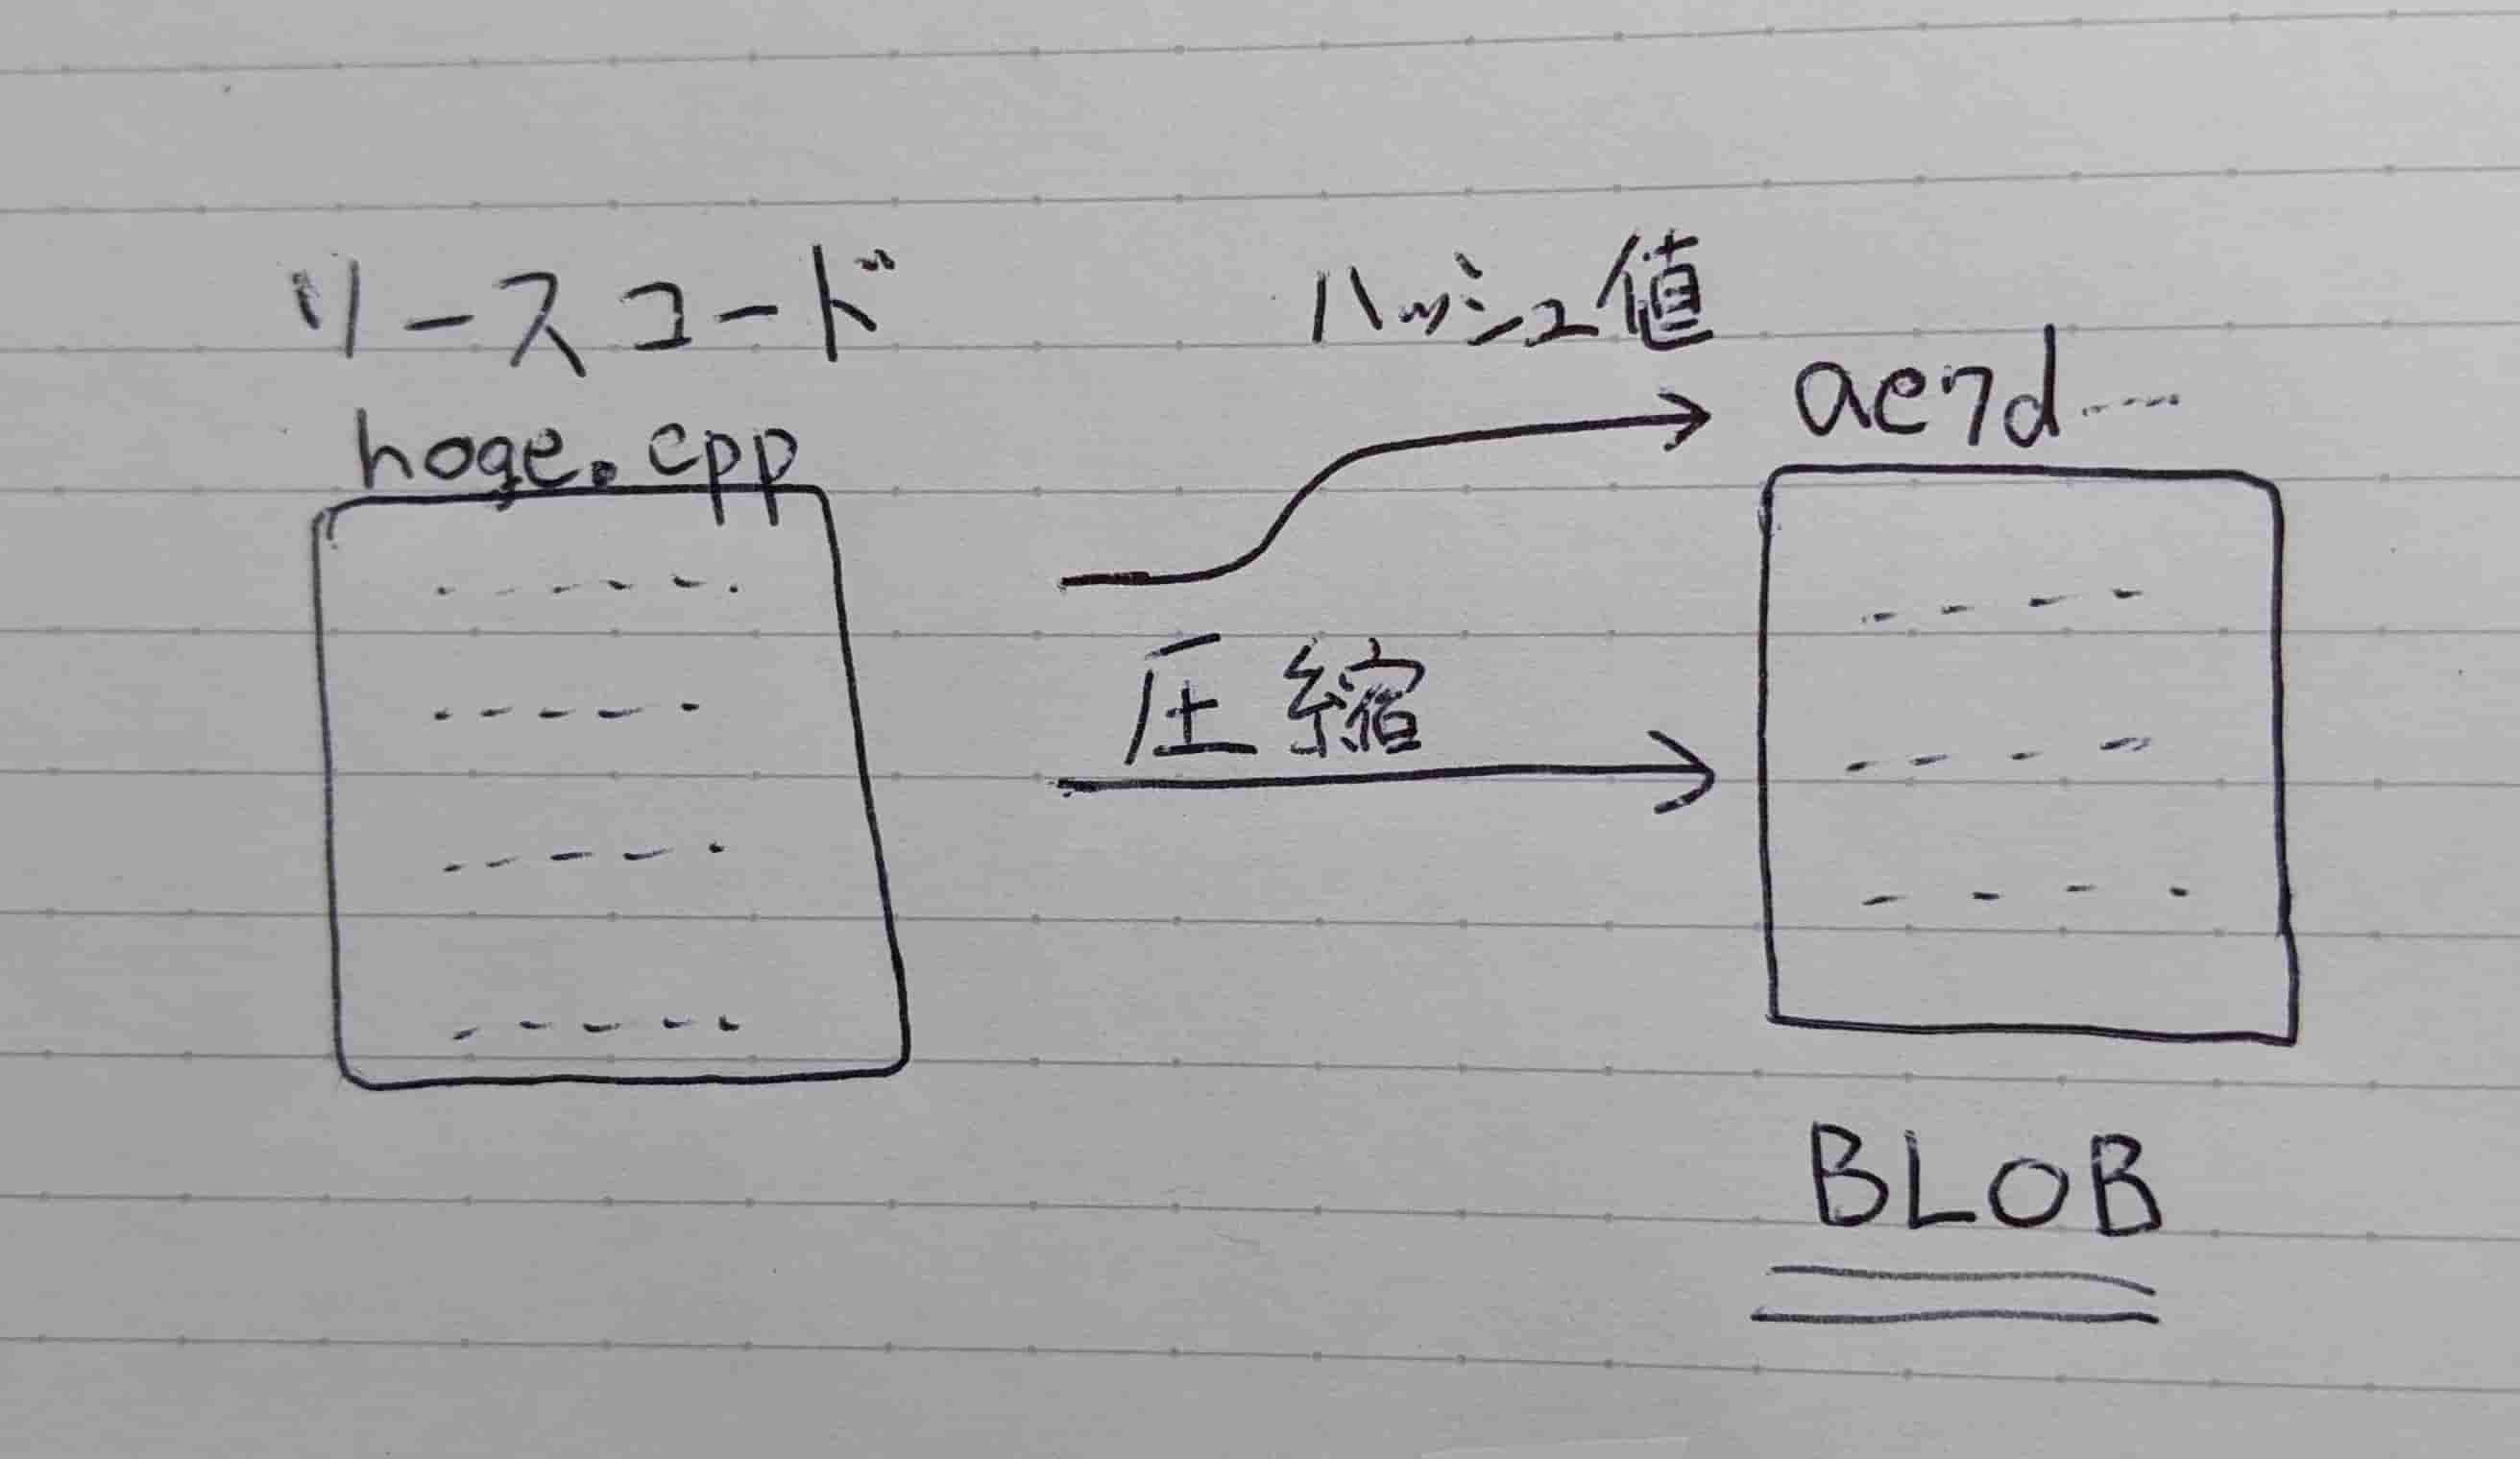 ソースコード
hoge.cpp
ハッシュ値
ae7d----
圧縮
BLOB